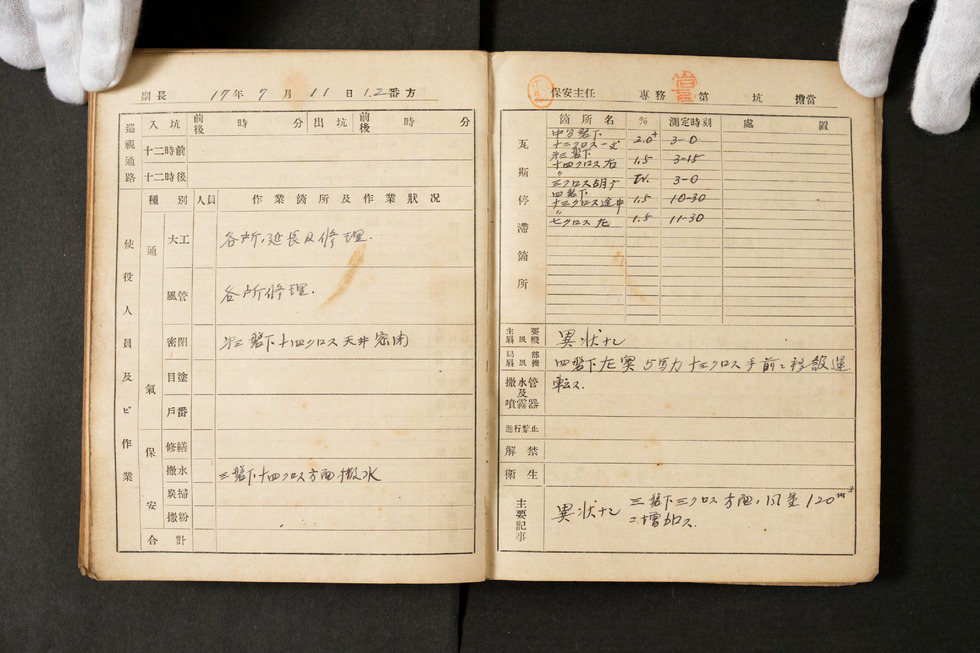 副長 17年 7月 11日 1.2番方
巡視通路
入坑 前後 時 分 出坑 前後 時 分
十二時前
十二時後
種別 人員 作業箇所及作業狀況
使役人員及ビ作業
通氣
大工 各所、延長及修理.
風管 各所修理.
密閉 盤下十四クロス天井密閉
目塗
戸番
保安
修繕
撒水 三盤下十四クロス方面撒水
炭掃
撒粉
合計
保安主任 専務 第 坑 擔當
瓦斯停滯箇所
箇所名 % 測定時刻 處置
盤下
十二クロス 2.0+ 3-0
盤下
十四クロス右 1.5 3-15
〃
三クロス 3-0
四盤下
十三クロス途中 1.5 10-30
〃
七クロス左 1.5 11-30
主要扇風機 異状ナシ
局部扇風機 四盤下左 5馬力十三クロス手前ニ移設運
撒水管及噴霧器 転ス.
進行禁止
解禁
衛生
主要記事 異状ナシ 三盤下三クロス方面、風量120m³
ニ増加ス.